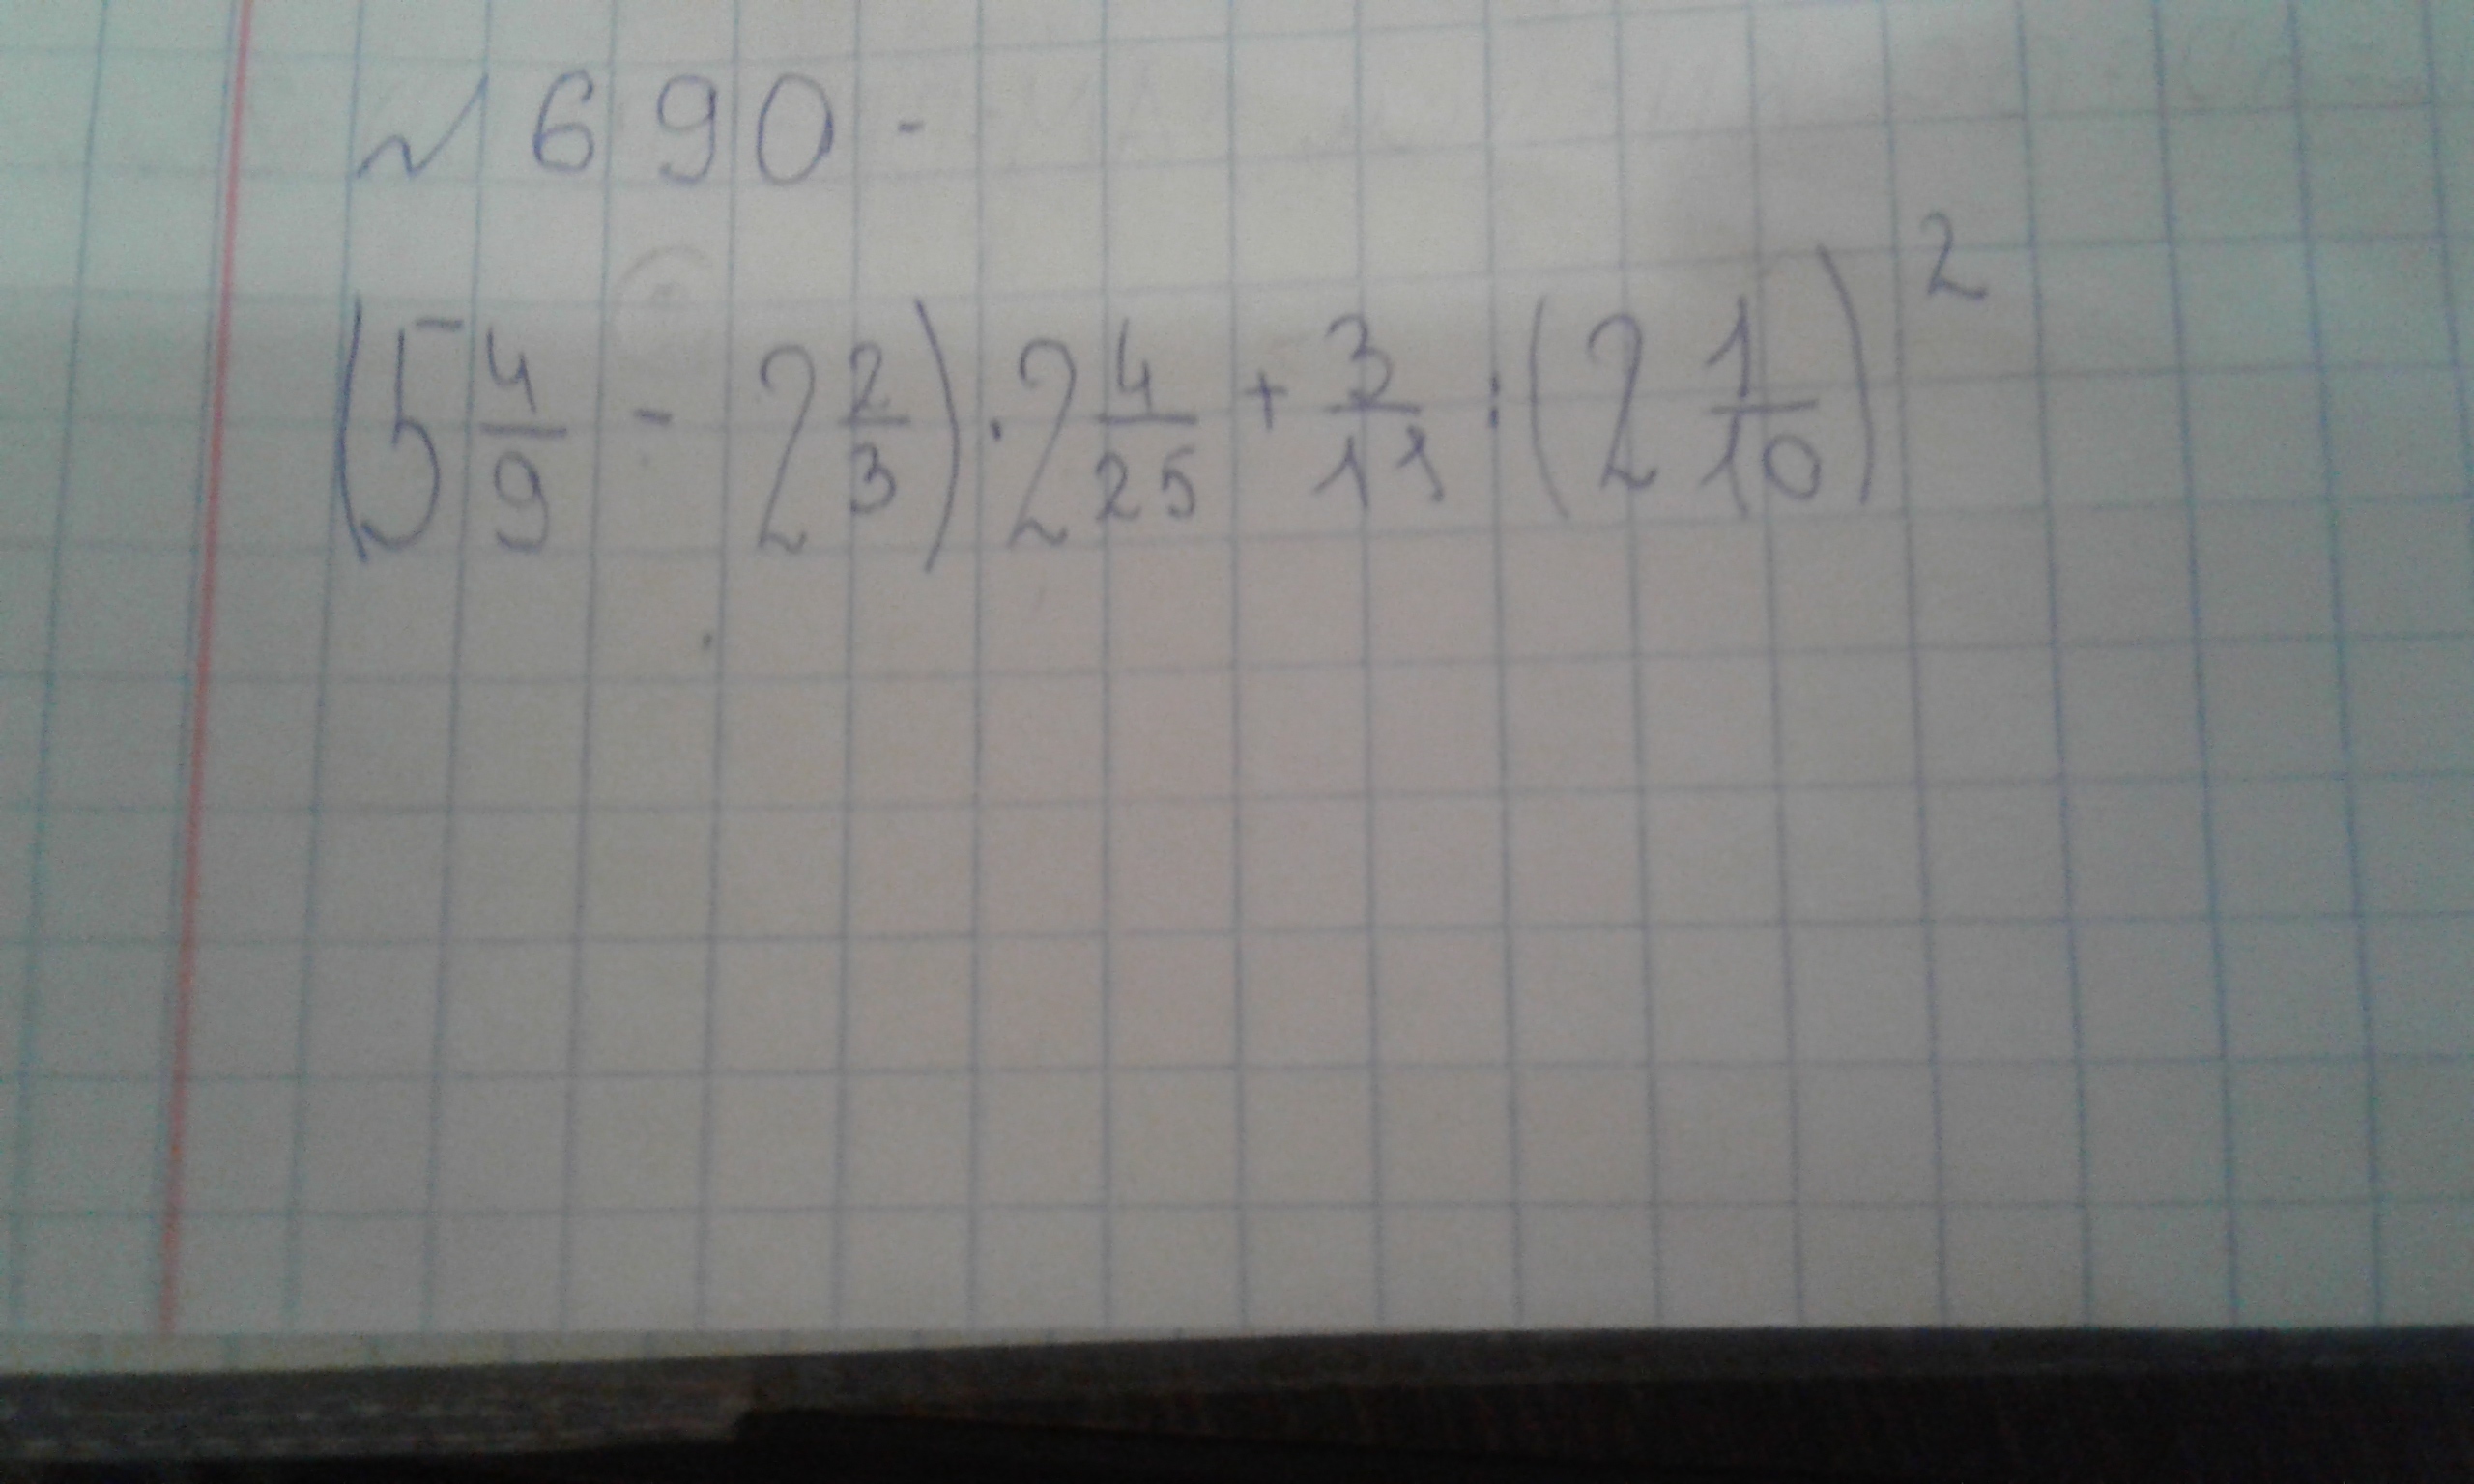 № 690.
(5 4/9 - 2 2/3) · 2 4/25 + 3/11 : (2 1/10)²